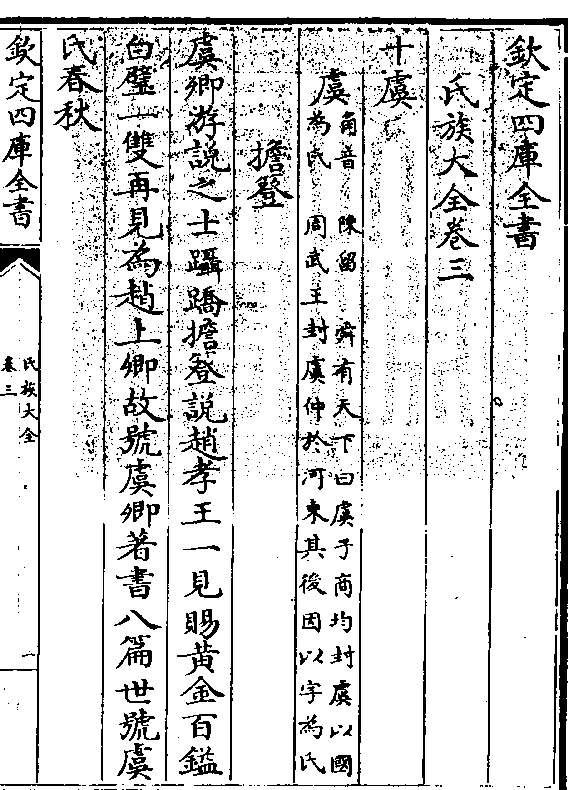 欽定四庫全書
氏族大全卷三
十虞
虞
角音　陳留　舜有天下曰虞子商均封虞以國
為氏　周武王封虞仲於河東其後因以字為氏
擔簦
虞卿游說之士躡蹻擔簦說趙孝王一見賜黃金百鎰
白璧一雙再見為趙上卿故號虞卿著書八篇世號虞
氏春秋
欽定四庫全書
氏族大全
卷三
一